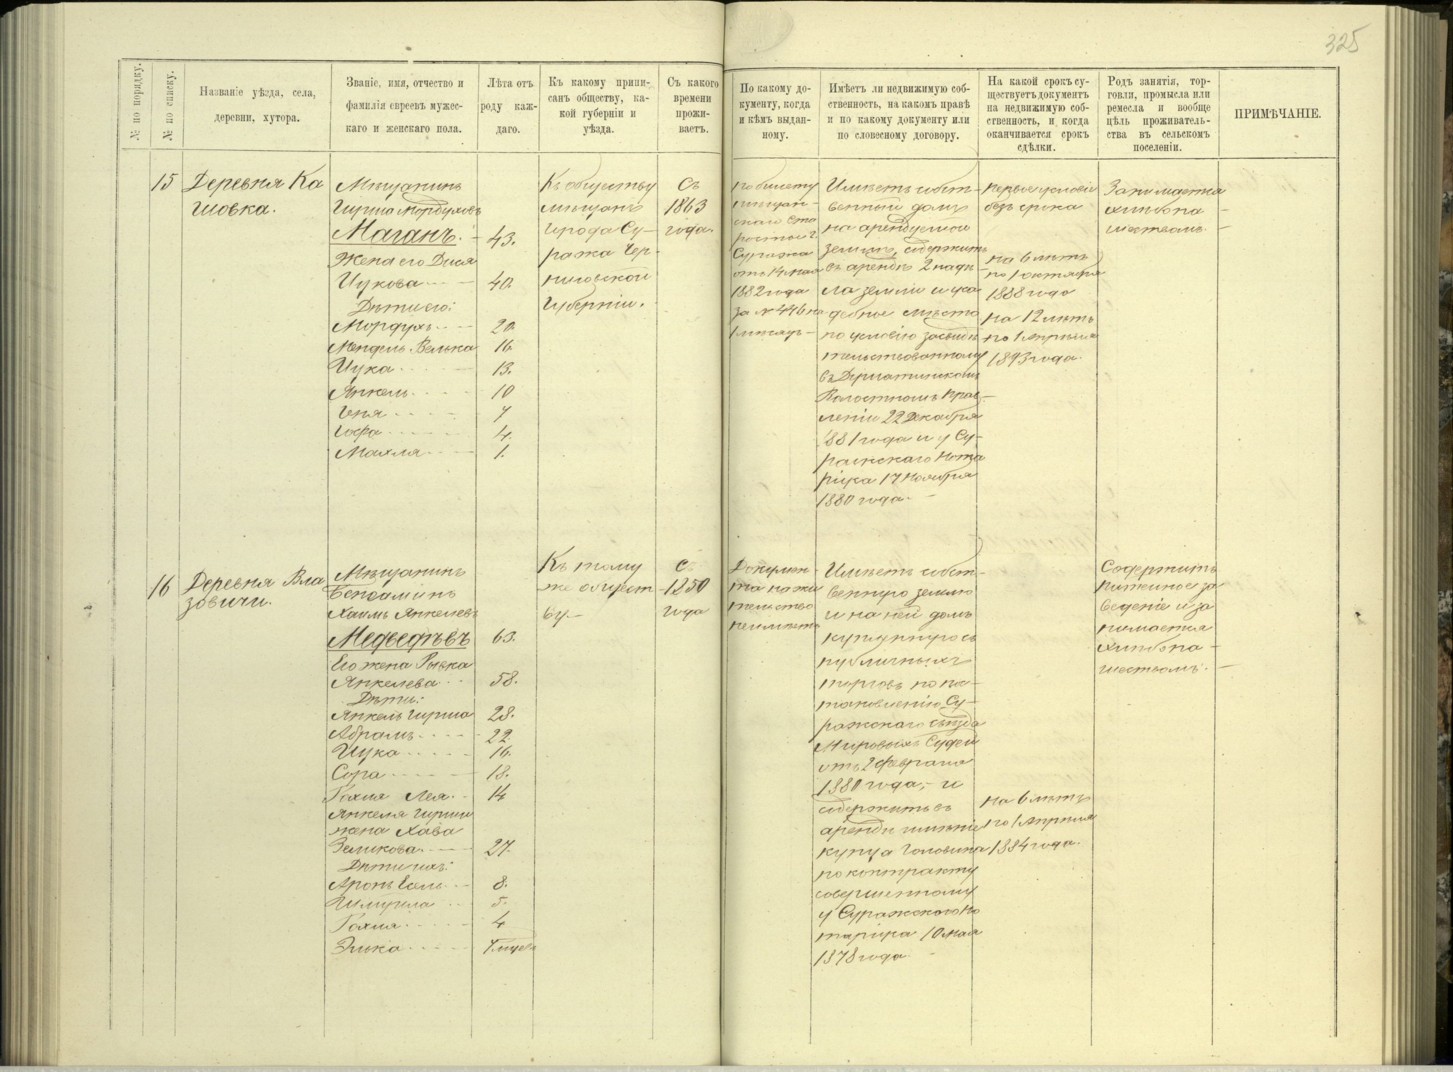 325
№ по порядку.
№ по списку.
Названіе уѣзда, села,
деревни, хутора.
Званіе, имя, отчество и
фамилія евреевъ мужес-
каго и женскаго пола.
Лѣта отъ
роду каж-
даго.
Къ какому припи-
санъ обществу, ка-
кой губерніи и
уѣзда.
Съ какого
времени
прожи-
ваетъ.
По какому до-
кументу, когда
и кѣмъ выдан-
ному.
Имѣетъ ли недвижимую соб-
ственность, на какомъ правѣ
и по какому документу или
по словесному договору.
На какой срокъ су-
ществуетъ документъ
на недвижимую соб-
ственность, и когда
оканчивается срокъ
сдѣлки.
Родъ занятія, тор-
говли, промысла или
ремесла и вообще
цѣль проживатель-
ства въ сельском
поселеніи.
ПРИМѢЧАНІЕ.
15
Деревня Ка
шовка.
Мѣщанинъ
Гирша Мордуховъ
Маганъ. 43.
Жена его Дися
Ицкова 40.
Дѣти его:
Мордухъ 20.
Мендель Велька 16.
Ицка 13.
Янкель 10
7
4.
Махля 1.
Къ обществу
мѣщанъ
города Су-
ража Чер-
ниговской
Губерніи.
Съ
1863
года.
по билету
мѣщан-
скаго Ста
росты г.
Суража
отъ 14 мая
1882 года
за № 446 на
1 мѣсяцъ
Имѣетъ собст-
венный домъ
на арендуемой
землѣ, содержитъ
въ аренду 2 надѣ-
ла земли и уса
дебное мѣсто
по условію засвидѣ
тельствованному
въ
Волостномъ Прав-
леніи 22 Декабря
1881 года и у Су-
ражскаго Нота
ріуса 17 Ноября
1880 года.
первое условіе
безъ срока
на 6 лѣтъ
по 1 октября
1888 года
на 12 лѣтъ
по 1 Апрѣля
1893 года.
Занимается
хлѣбопа-
шествомъ.
16
Деревня Вла
зовичи.
Мѣщанинъ
Беніаминъ
Хаимъ Янкелевъ
Медведѣвъ 63.
Его жена Рывка
Янкелева 58.
Дѣти:
Янкель Гирша 28.
Абрамъ 22.
Ицка 16.
Сора 18.
Гохия Лея 14
Янкеля Гирши
жена Хава
Зеликова 27.
Дѣти ихъ:
Аронъ Есель 8.
Шмуила 5.
Гохия 4
Эшка
Къ тому
же общест-
ву.
съ
1850
года
Докумен-
та на жи
тельство
неимѣетъ
Имѣетъ собст-
венную землю
и на ней домъ
купленную съ
публичныхъ
торговъ по по-
становленію Су-
ражскаго съѣзда
Мировыхъ Судей
отъ 2 Февраля
1880 года, и
содержитъ въ
аренду имѣніе
купца Головина
по контракту
совершенному
у Суражского Но
таріуса 10 мая
1878 года.
на 6 лѣтъ
по 1 Апрѣля
1884 года.
Содержитъ
питейное за
веденіе и за
нимается
хлѣбопа-
шествомъ.